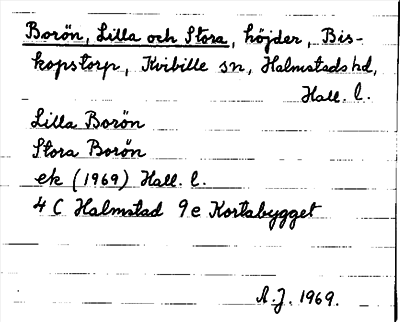 Borön, Lilla och Stora, höjder, Bis-
kopstorp, Kvibille sn, Halmstads hd,
Hall. l.
Lilla Borön
Stora Borön
ek (1969) Hall. l.
4 C Halmstad 9 e Kortabygget
A.J. 1969.